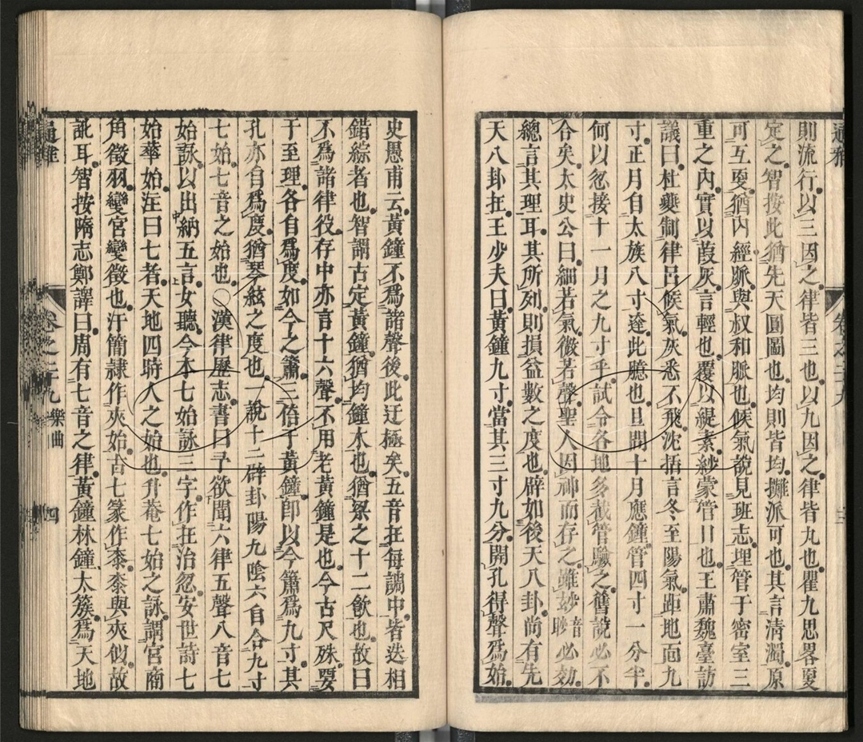 則流行以三因之律皆三也以九因之律皆九也瞿九思畧夏
定之智按此猶先天圓圖也均則皆均攤派可也其言清濁原
可互㪅猶内經脈與叔和脈也候氣說見班志埋管于密室三
重之內實以葭灰言輕也覆以緹素紗蒙管口也王肅魏臺訪
議曰杜夔制律呂候氣灰悉不飛沈括言冬至陽氣距地面九
寸正月自太族八寸逵此臆也且問十月應鐘管四寸一分半
何以忽接十一月之九寸乎試令各地多截管驗之舊說必不
合矣太史公曰細若氣微若聲聖人因神而存之雖妙暗必効
總言其理耳其所列則損益數之度也辟如後天八卦尚有先
天八卦在王少夫曰黃鐘九寸當其三寸九分開孔得聲爲始
史愚甫云黃鐘不爲諸聲後此迂極矣五音在每調中皆迭相
錯綜者也智謂古定黃鐘猶均鐘木也猶琴之十二飲也故曰
不爲諸律役存中亦言十六聲不用老黃鐘是也今古尺殊要
于至理各自爲度如今之簫三倍于黃鐘卽以今簫爲九寸其
孔亦自爲度猶琴絃之度也一說十二辟卦陽九陰六自合九寸
七始七音之始也○漢律歷志書曰予欲聞六律五聲八音七
始詠以出納五言女聽今本七始詠三字作在治忽安世詩七
始華始注曰七者天地四時人之始也升菴七始之詠謂宮商
角徵羽變宮變徵也汗簡隸作夾始古七篆作桼桼與夾似故
訛耳智按隋志鄭譯曰周有七音之律黃鐘林鐘太簇爲天地
卷之二九 樂曲 四